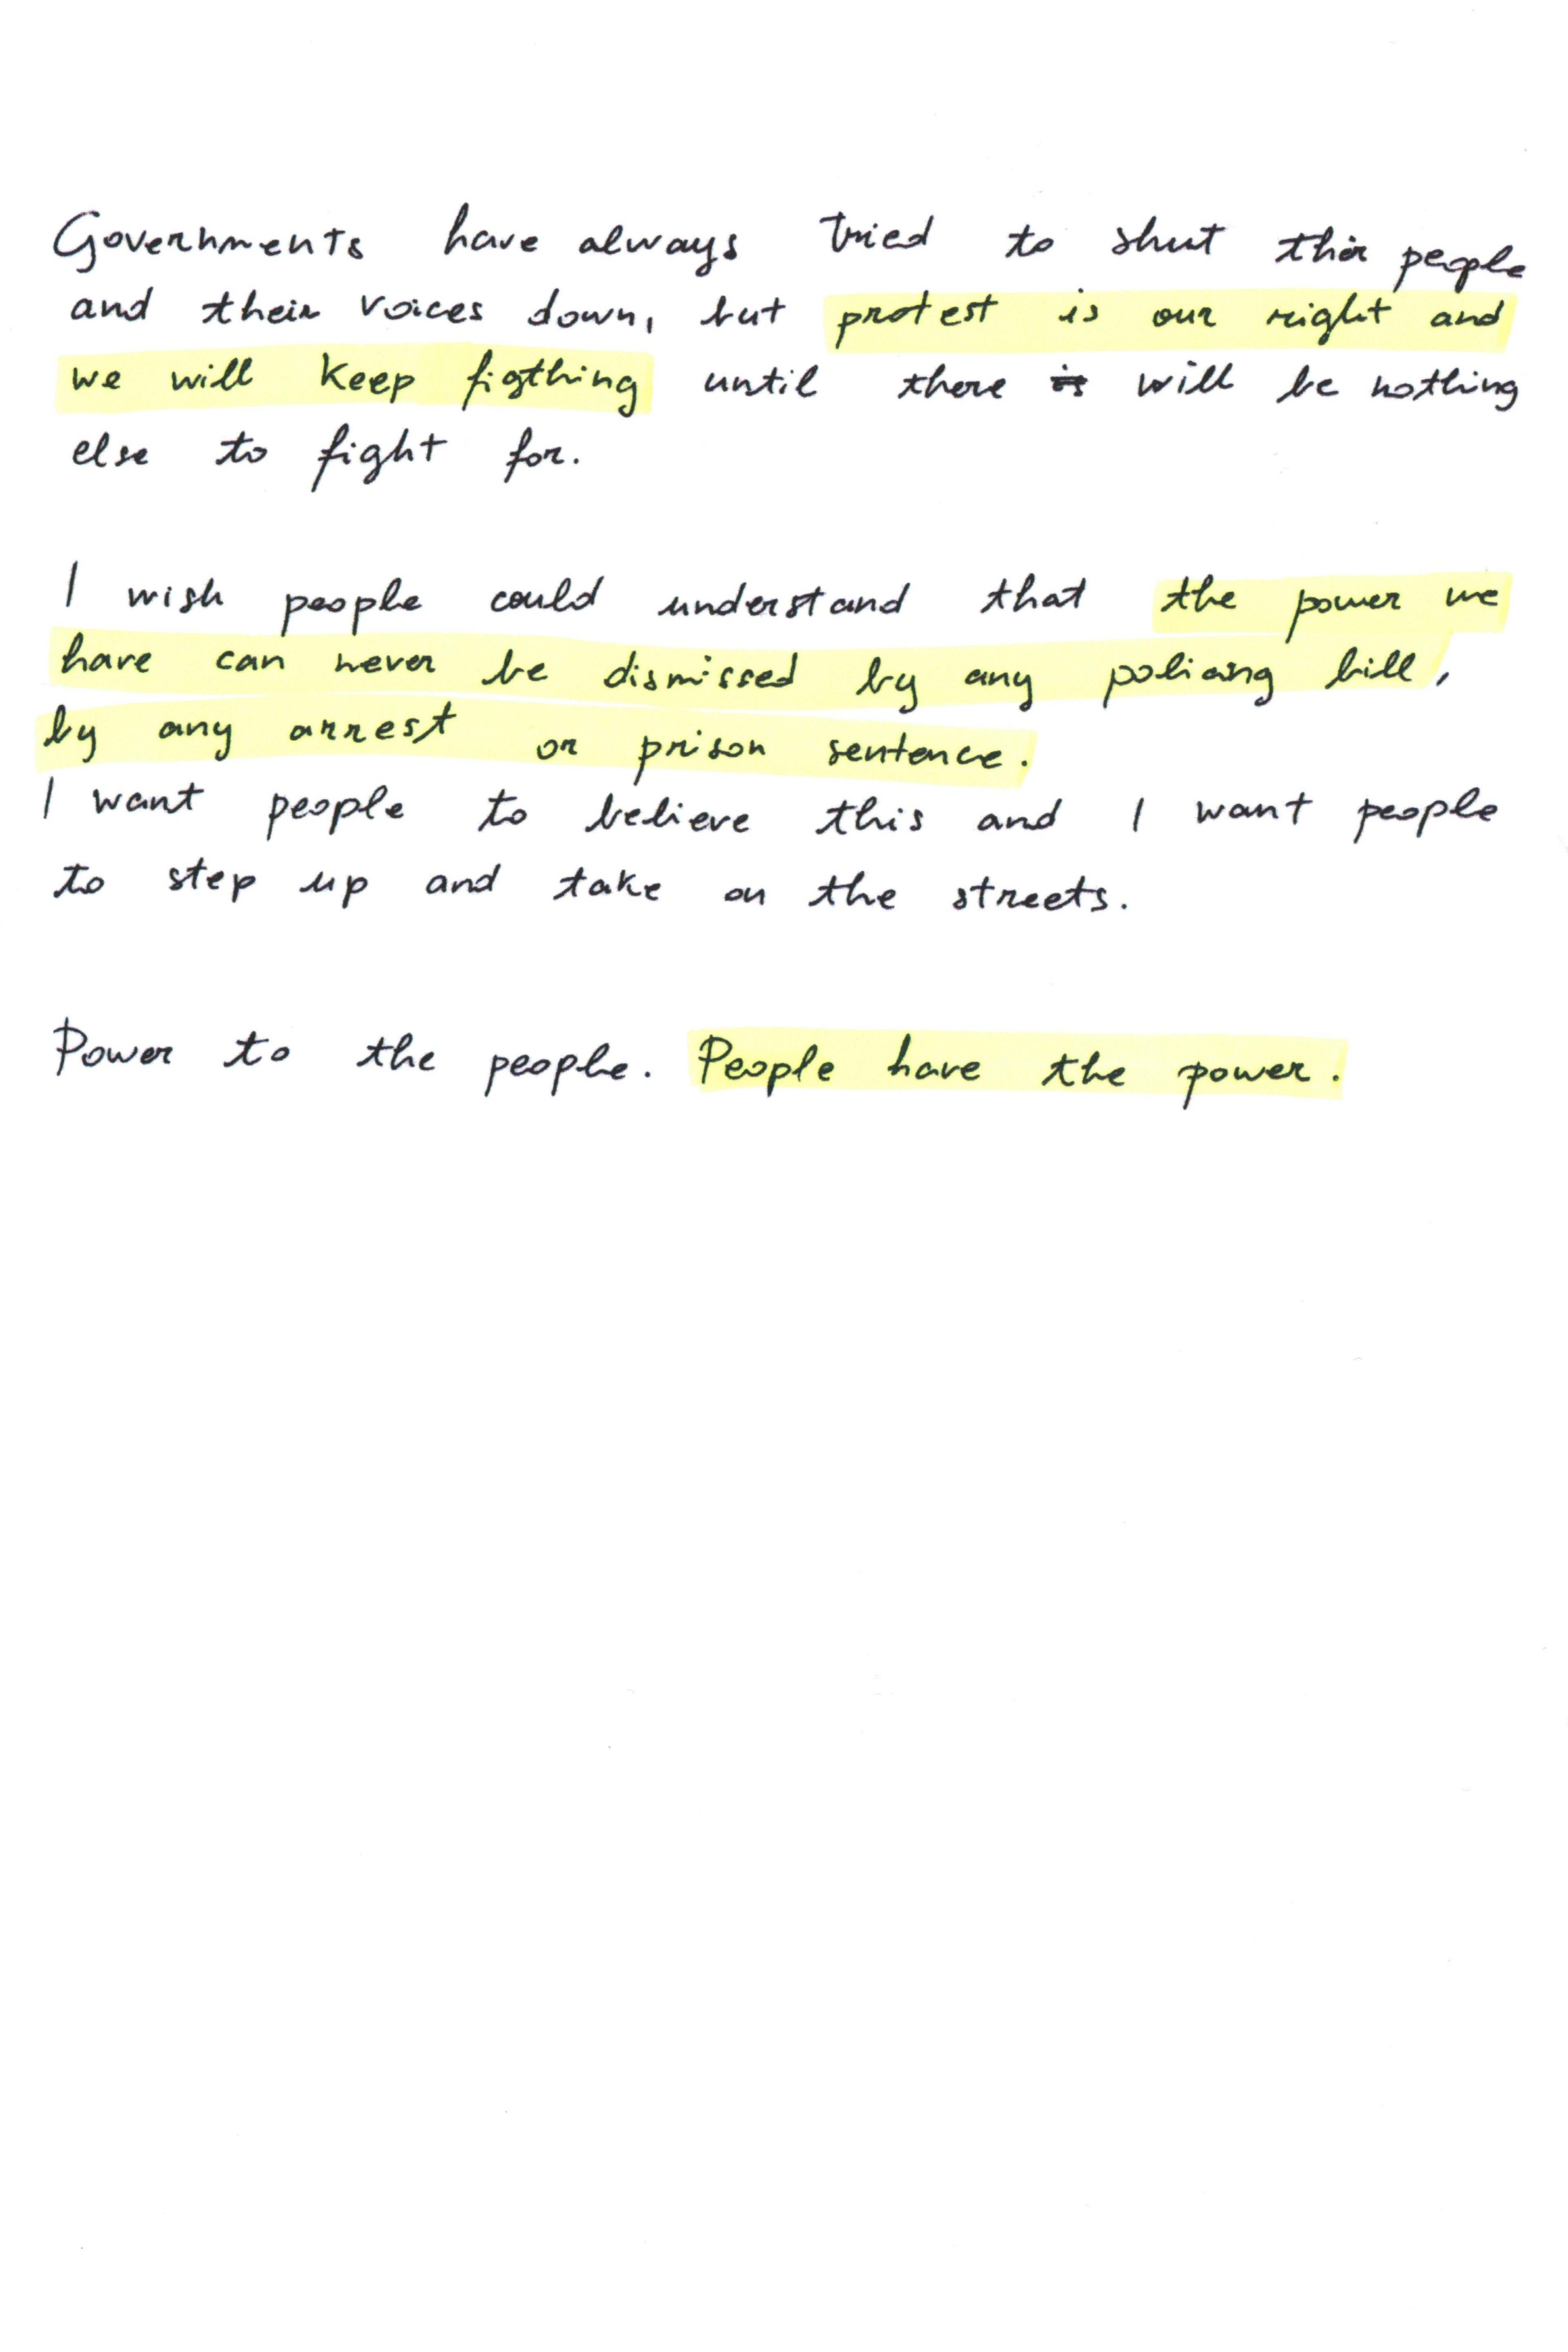 Governments have always tried to shut their people
and their voices down, but protest is our right and
we will keep figthing until there is will be nothing
else to fight for.
I wish people could understand that the power we
have can never be dismissed by any policing bill,
by any arrest or prison sentence.
I want people to believe this and I want people
to step up and take on the streets.
Power to the people. People have the power.